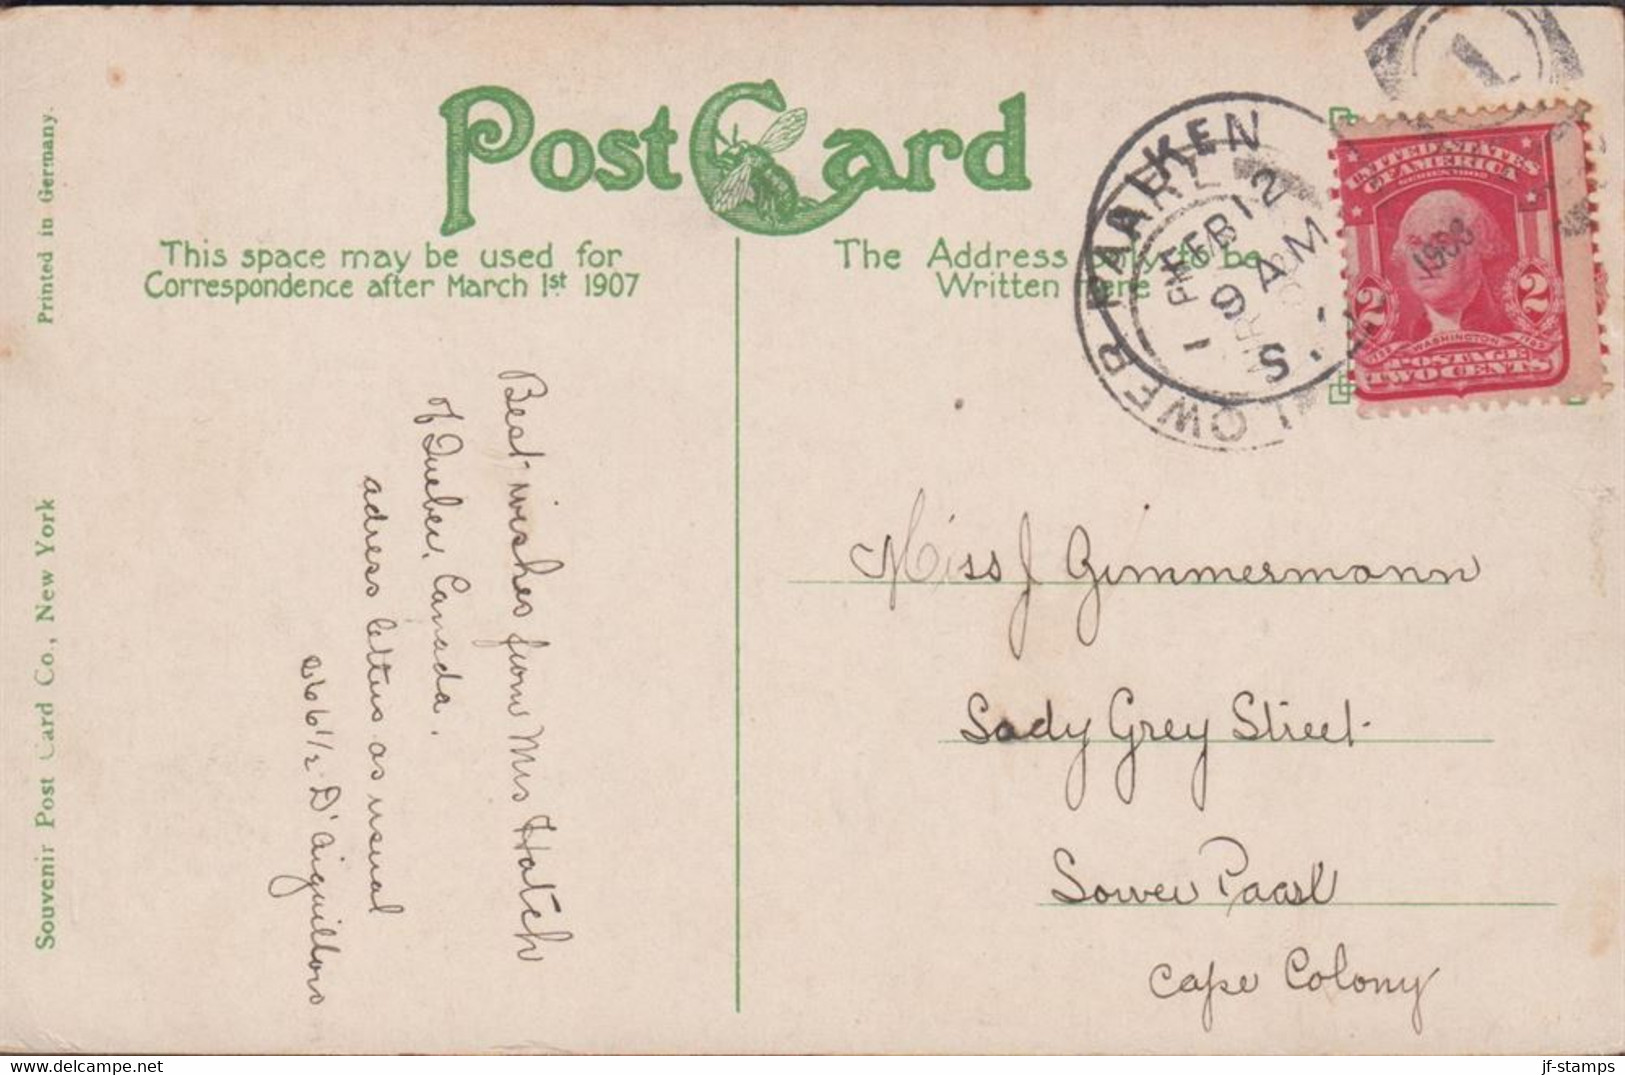 Post Card
This space may be used for
Correspondence after March 1st 1907
The Address only to be
Written Here
Printed in Germany.
Souvenir Post Card Co., New York
Best wishes from Mrs Hatch
of Quebec, Canada.
adress letters as usual
266 1/2 D'Aiguillons
AIKEN
FEB 12
9 AM
S.
1908
LOWER PAARL
1
UNITED STATES
OF AMERICA
SERIES 1902
2 2
WASHINGTON
POSTAGE
TWO CENTS
Miss J Gimmermann
Lady Grey Street
Lower Paarl
Cape Colony
jf-stamps